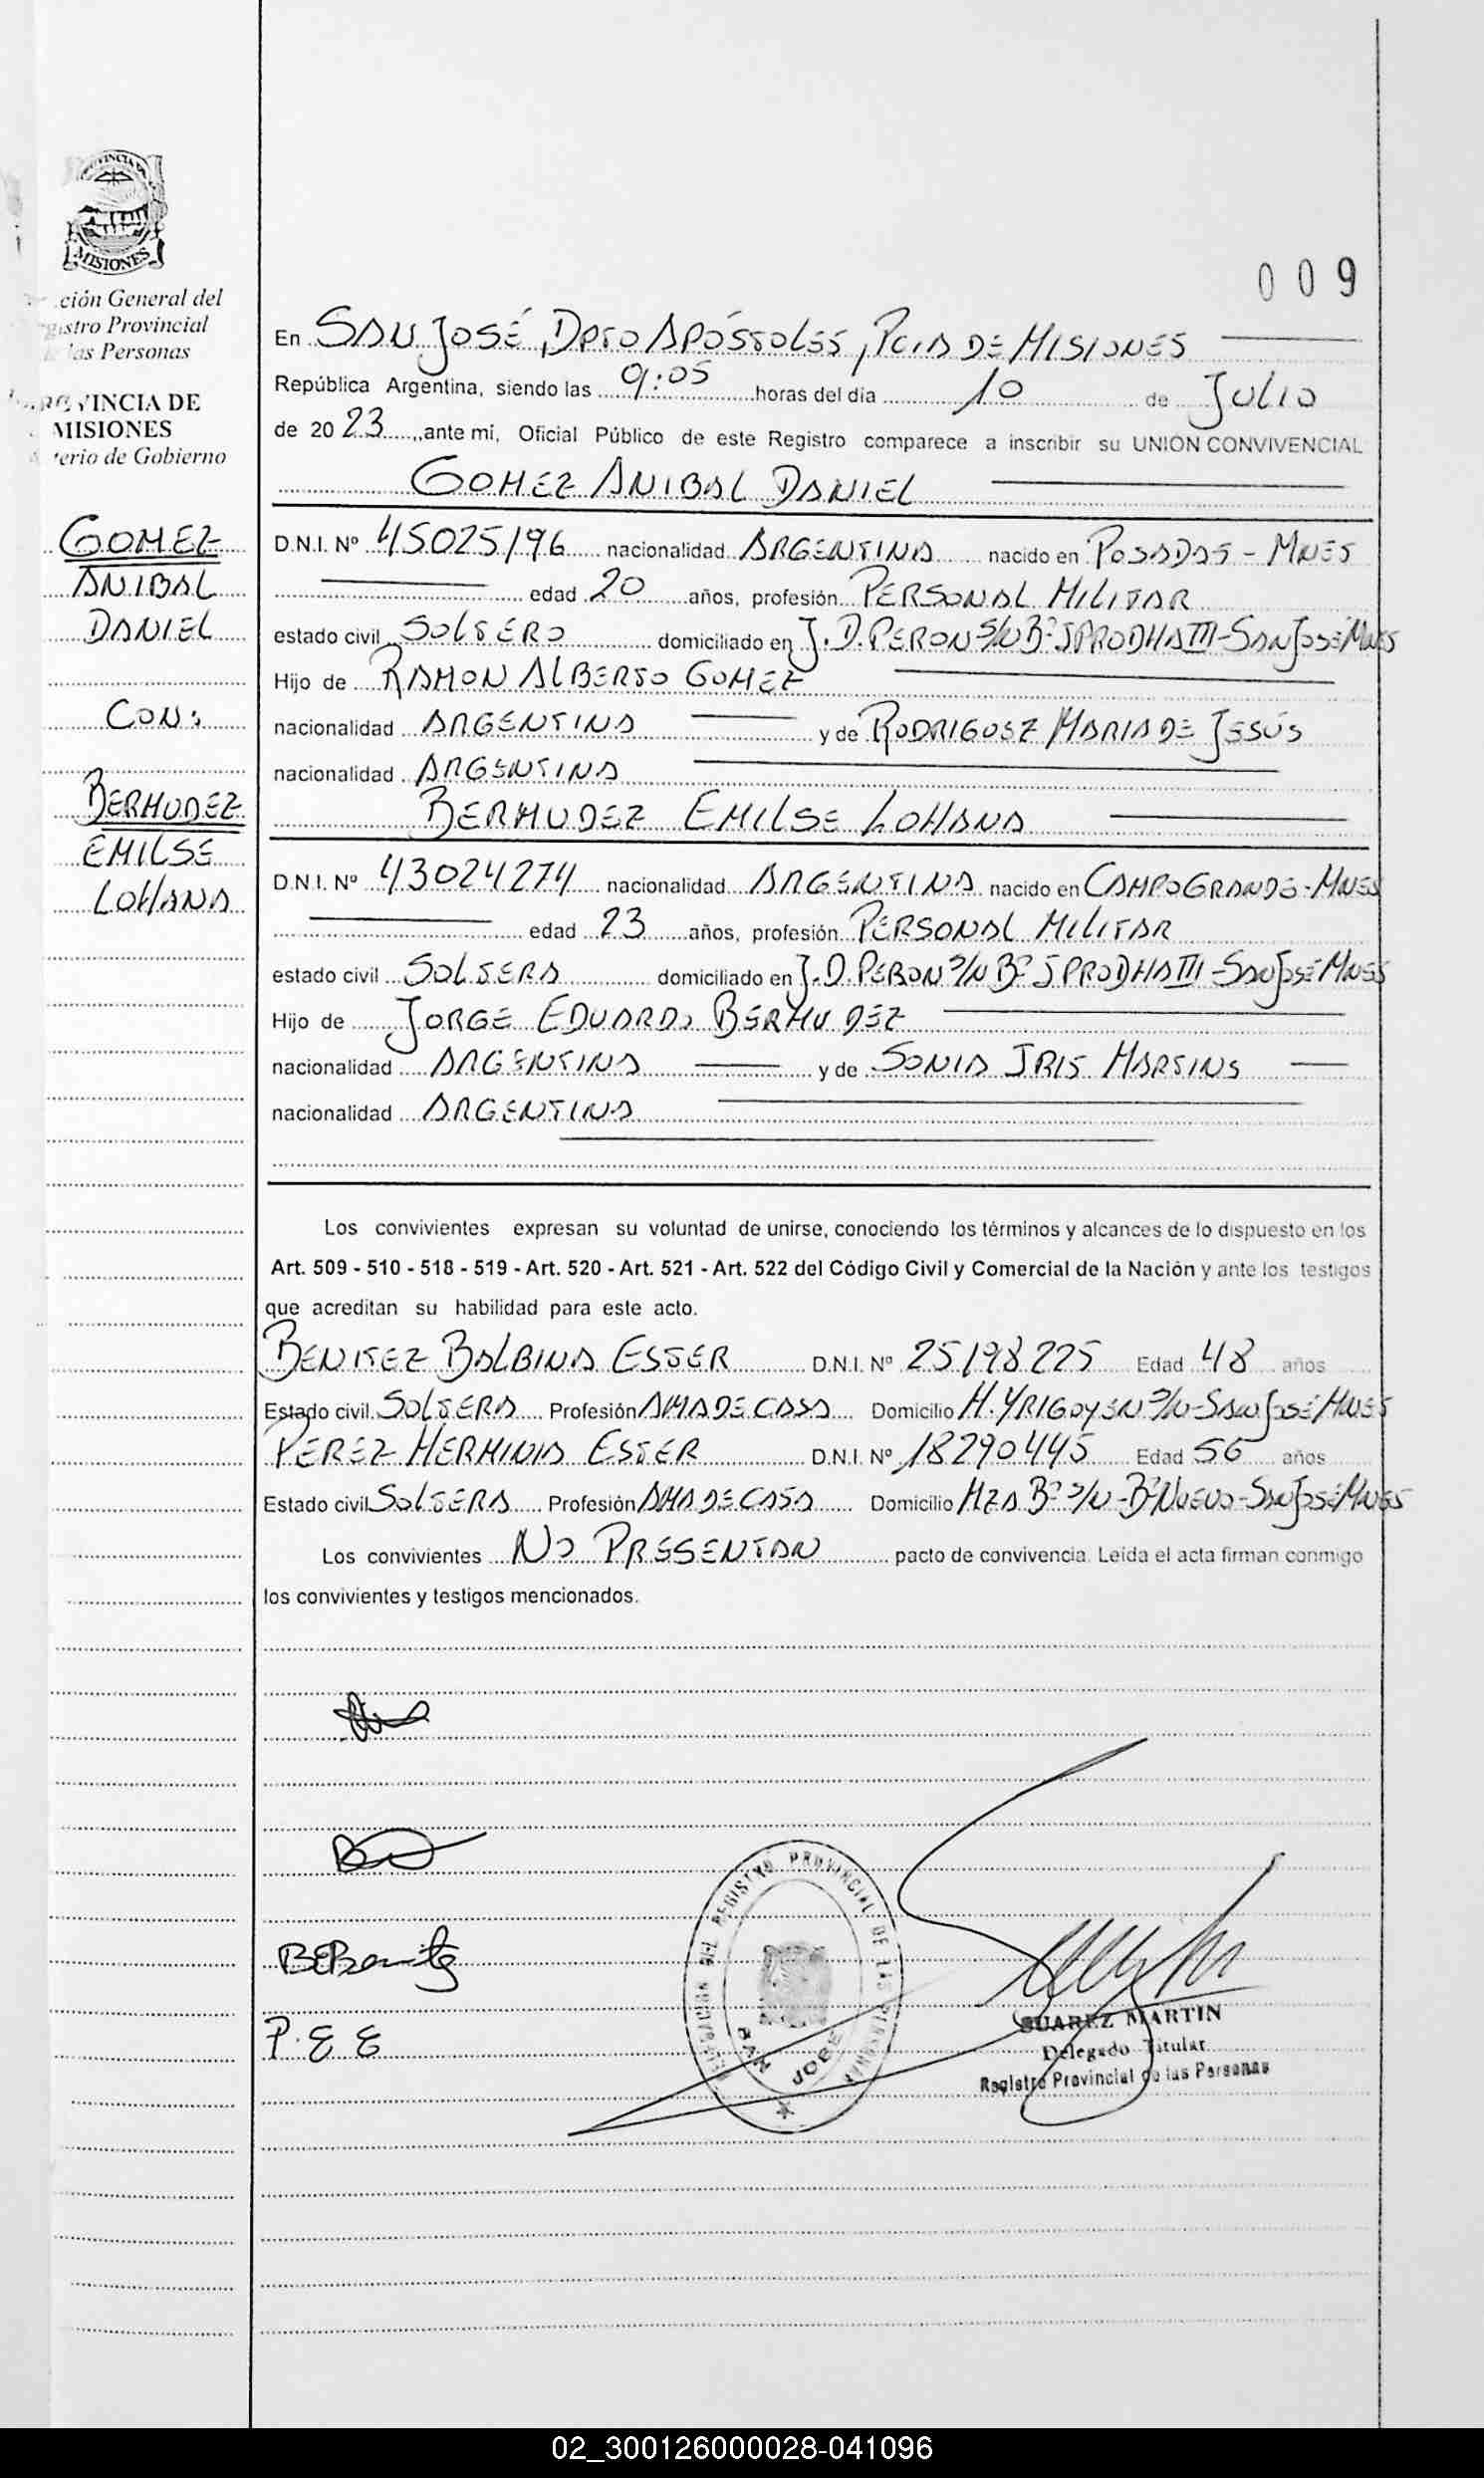 PROVINCIA DE
MISIONES
ción General del
gistro Provincial
las Personas
VINCIA DE
MISIONES
terio de Gobierno
GOMEZ
ANIBAL
DANIEL
CON:
BERMUDEZ
EMILSE
LOHANA
009
En SAN JOSÉ, DPTO APÓSTOLES, PCIA DE MISIONES
República Argentina, siendo las 9:05 horas del día 10 de JULIO
de 2023, ante mí, Oficial Público de este Registro comparece a inscribir su UNIÓN CONVIVENCIAL
GOMEZ ANIBAL DANIEL
D.N.I. Nº 45025196 nacionalidad ARGENTINA nacido en POSADAS - MNES
edad 20 años, profesión PERSONAL MILITAR
estado civil SOLTERO domiciliado en J.D. PERON S/N Bº IPRODHA III - SAN JOSÉ MNES
Hijo de RAMON ALBERTO GOMEZ
nacionalidad ARGENTINA y de RODRIGUEZ MARIA DE JESÚS
nacionalidad ARGENTINA
BERMUDEZ EMILSE LOHANA
D.N.I. Nº 43024274 nacionalidad ARGENTINA nacido en CAMPO GRANDE - MNES
edad 23 años, profesión PERSONAL MILITAR
estado civil SOLTERA domiciliado en J.D. PERON S/N Bº IPRODHA III - SAN JOSÉ MNES
Hijo de JORGE EDUARDO BERMUDEZ
nacionalidad ARGENTINA y de SONIA IRIS MARTINS
nacionalidad ARGENTINA
Los convivientes expresan su voluntad de unirse, conociendo los términos y alcances de lo dispuesto en los
Art. 509 - 510 - 518 - 519 - Art. 520 - Art. 521 - Art. 522 del Código Civil y Comercial de la Nación y ante los testigos
que acreditan su habilidad para este acto.
BENITEZ BALBINA ESTER D.N.I. Nº 25198225 Edad 48 años
Estado civil SOLTERA Profesión AMA DE CASA Domicilio H. YRIGOYEN S/N - SAN JOSÉ MNES
PEREZ HERMINIA ESTER D.N.I. Nº 18290445 Edad 56 años
Estado civil SOLTERA Profesión AMA DE CASA Domicilio MZA Bº S/N - Bº NUEVO - SAN JOSÉ MNES
Los convivientes NO PRESENTAN pacto de convivencia. Leída el acta firman conmigo
los convivientes y testigos mencionados.
BEBenitez
P. E E
DELEGACION DEL REGISTRO PROVINCIAL DE LAS PERSONAS
SAN JOSE
SUAREZ MARTIN
Delegado Titular
Registro Provincial de las Personas
02_300126000028-041096